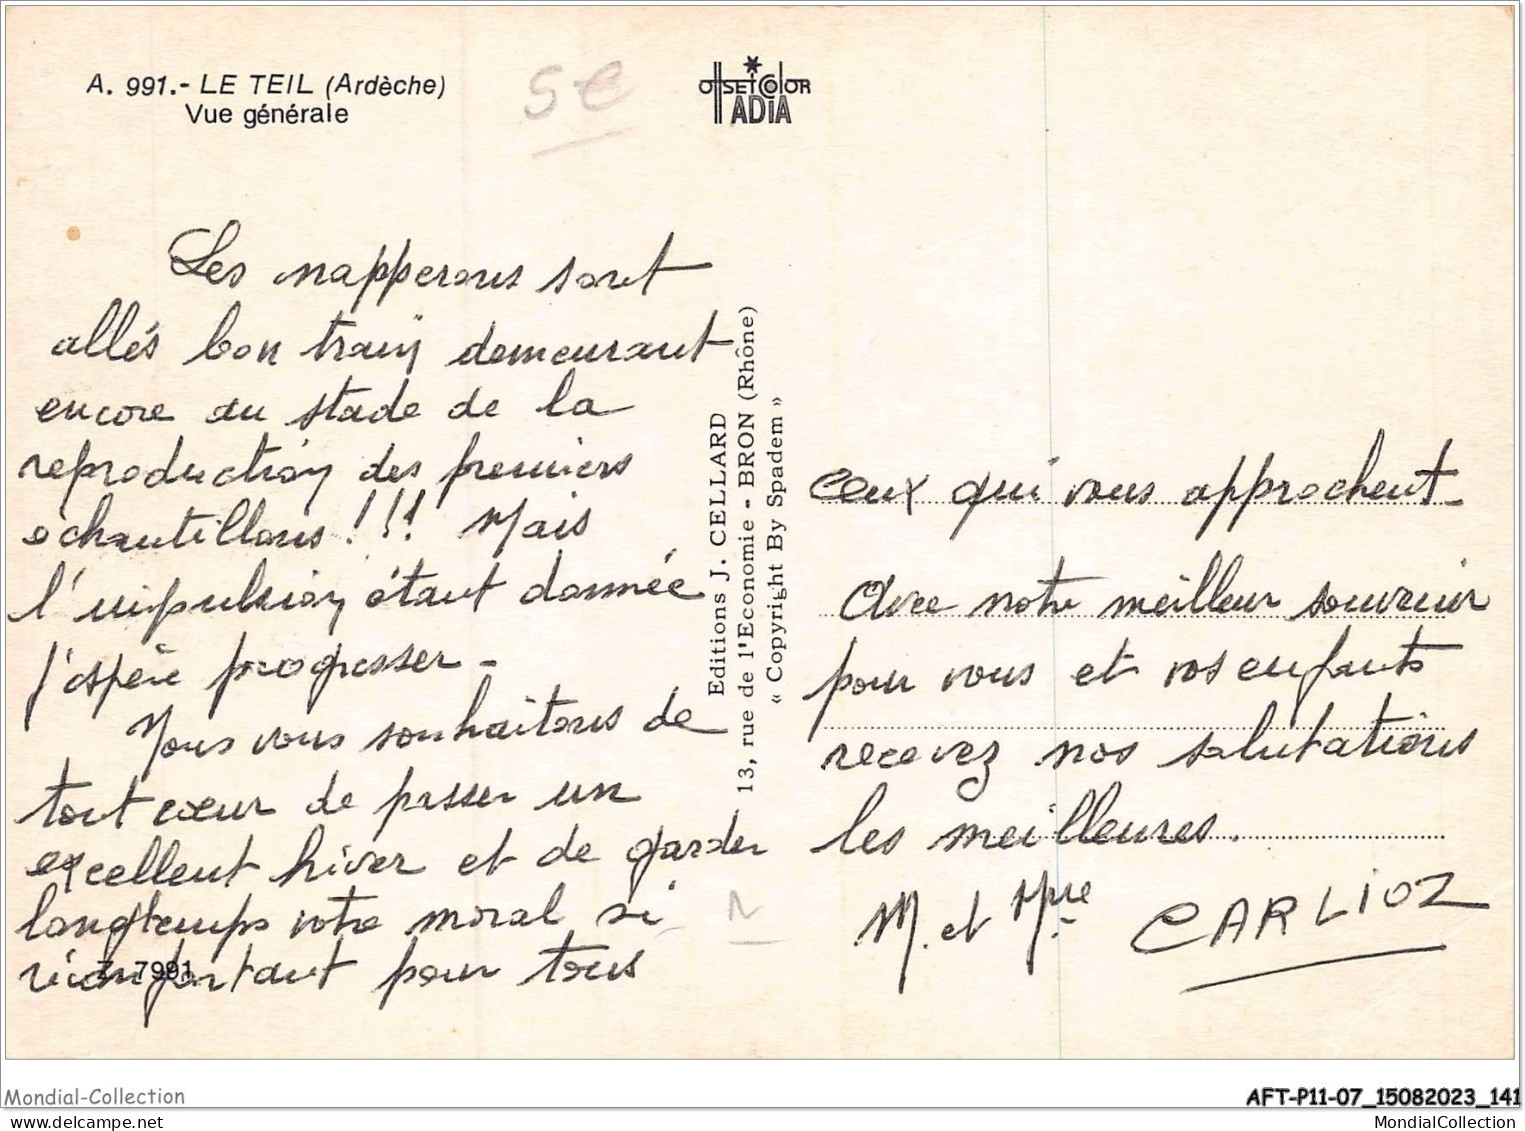 A. 991.- LE TEIL (Ardèche)
Vue générale
5€
OffSEt COlOR
ADIA
Les napperons sont
allés bon train demeurant
encore au stade de la
reproduction des premiers
échantillons!!! Mais
l'impulsion étant donnée
j'espère progresser -
Nous vous souhaitons de
tout cœur de passer un
excellent hiver et de garder
longtemps votre moral si
réconfortant pour tous
Z. 7991
Editions J. CELLARD
13, rue de l'Economie - BRON (Rhône)
« Copyright By Spadem »
ceux qui vous approchent -
Avec notre meilleur souvenir
pour vous et vos enfants
recevez nos salutations
les meilleures.
M. et Mme CARLIOZ
N
Mondial-Collection
AFT-P11-07_15082023_141
mondial-collection.net
MondialCollection